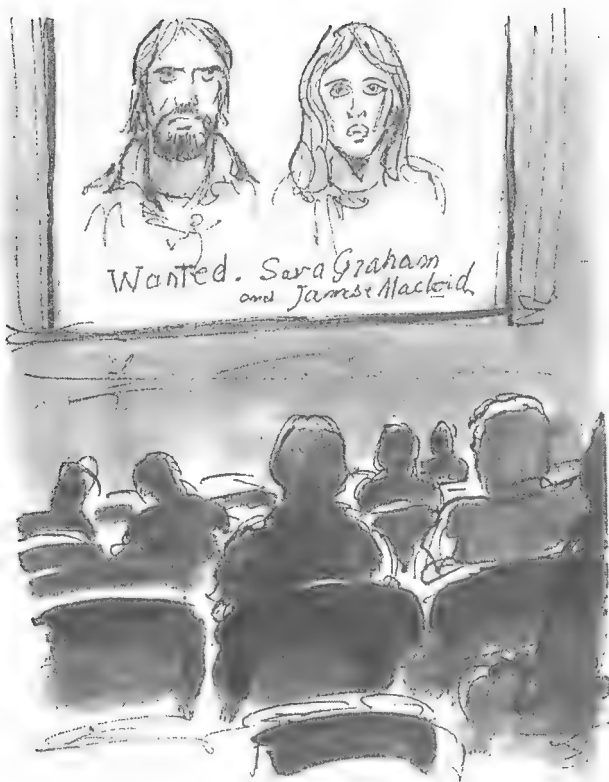 Wanted. Sara Graham
and James Macleid